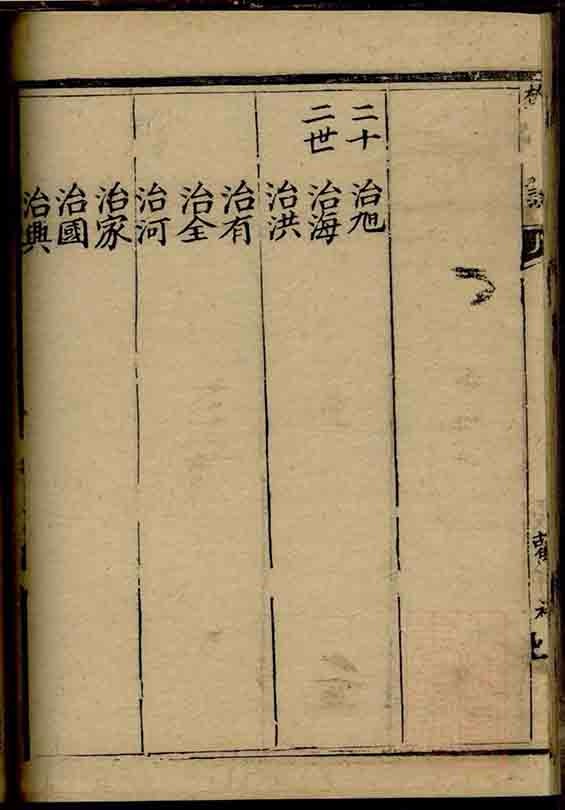 二十
二世
治旭
治海
治洪
治有
治全
治河
治家
治國
治興